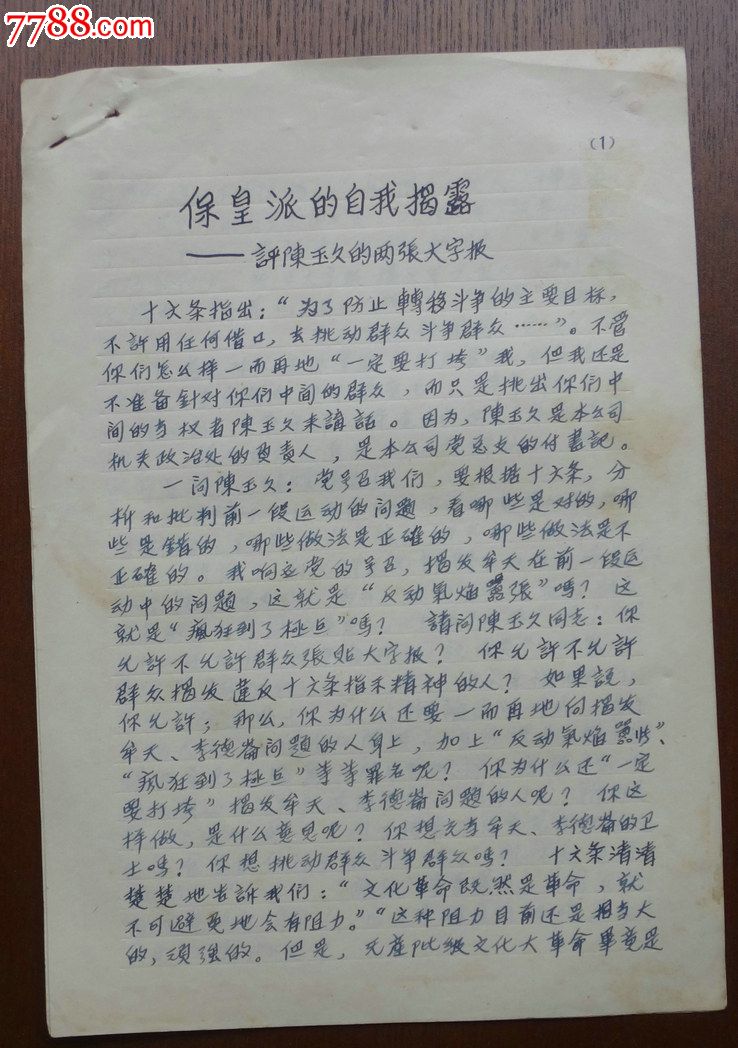 7788.com
(1)
保皇派的自我揭露
——評陳玉久的两張大字报
十六条指出:“为了防止轉移斗争的主要目标,
不許用任何借口,去挑动群众斗争群众……”。不管
你們怎么样一而再地“一定要打垮”我,但我还是
不准备針对你們中间的群众,而只是挑出你們中
间的当权者陳玉久来講話。因为,陳玉久是本公司
机关政治处的負責人,是本公司党总支的付書記。
一问陳玉久:党号召我們,要根据十六条,分
析和批判前一段运动的问題,看哪些是对的,哪
些是錯的,哪些做法是正確的,哪些做法是不
正確的。我响应党的号召,揭发牟天在前一段运
动中的问題,这就是“反动氣焰囂張”嗎?这
就是“瘋狂到了極点”嗎?請问陳玉久同志:你
允許不允許群众張貼大字报?你允許不允許
群众揭发違反十六条指示精神的人?如果説,
你允許;那么,你为什么还要一而再地向揭发
牟天、李德崙问題的人身上,加上“反动氣焰囂張”、
“瘋狂到了極点”等等罪名呢?你为什么还“一定
要打垮”揭发牟天、李德崙问題的人呢?你这
样做,是什么意思呢?你想充当牟天、李德崙的卫
士嗎?你想挑动群众斗争群众嗎?十六条清清
楚楚地告訴我們:“文化革命既然是革命,就
不可避免地会有阻力。”“这种阻力目前还是相当大
的,頑強的。但是,无産阶级文化大革命畢竟是